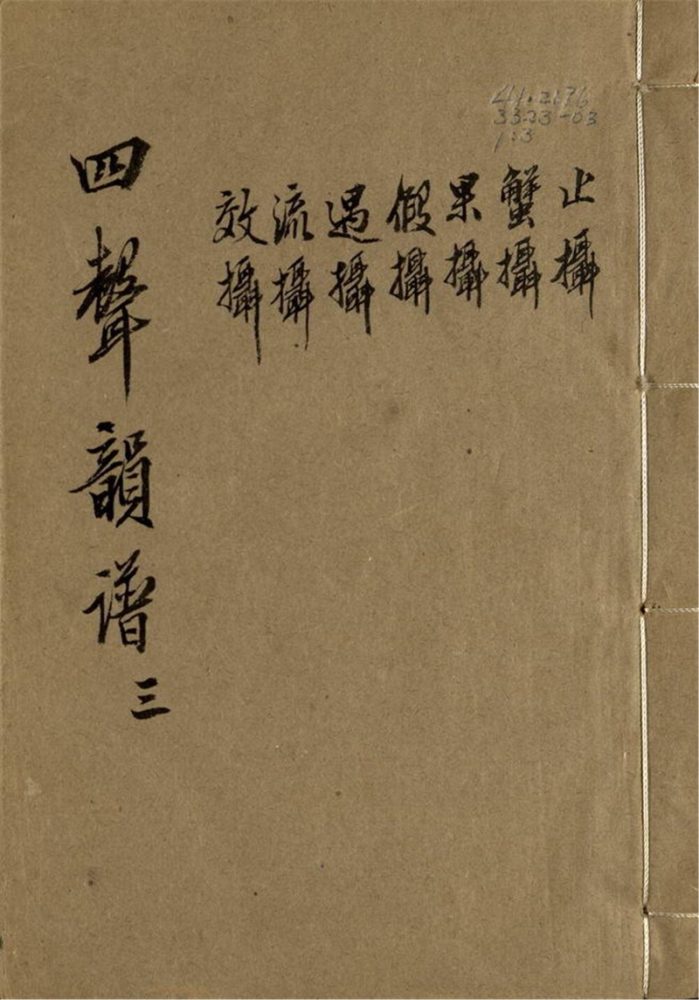 41.2176
3323-03
1:3
止攝
蟹攝
果攝
假攝
遇攝
流攝
效攝
四聲韻譜三